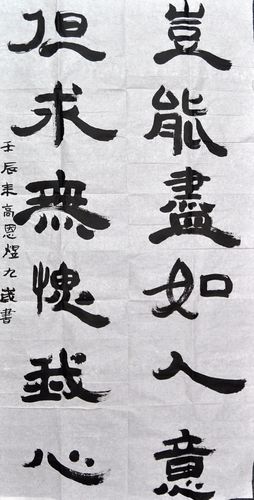 豈能盡如人意
但求無愧我心
壬辰末高恩煜九歲書